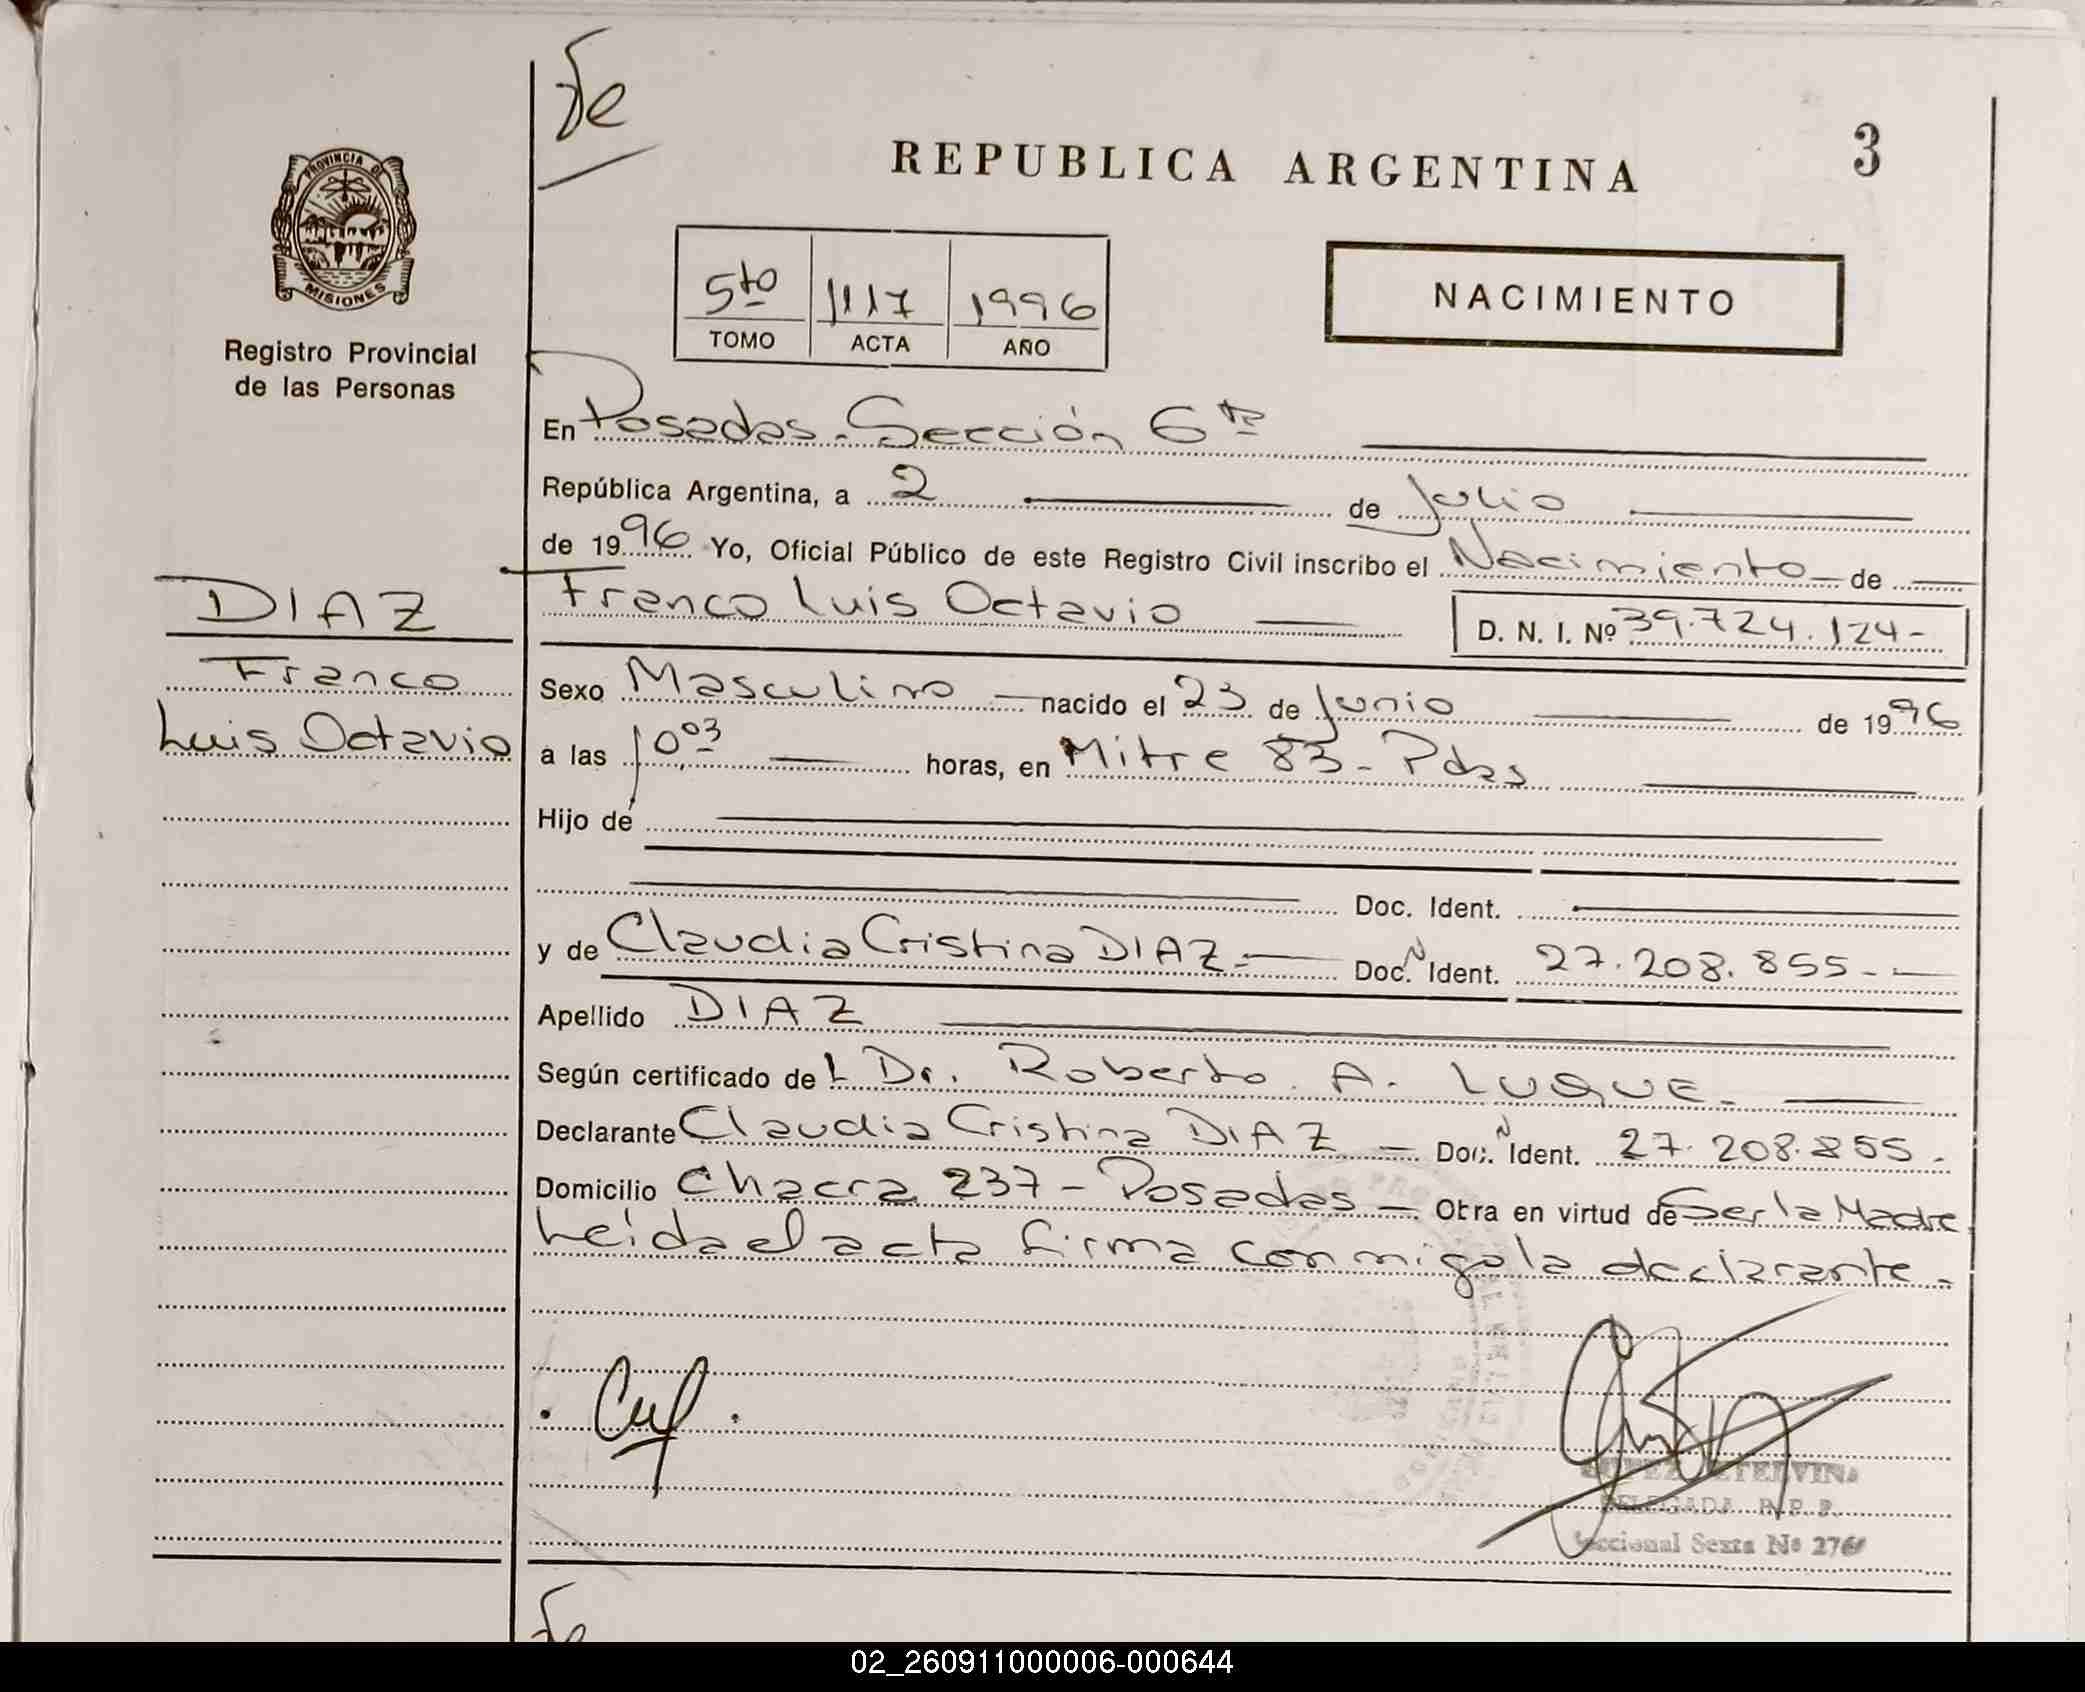 Fe
REPUBLICA ARGENTINA
3
PROVINCIA DE
MISIONES
Registro Provincial
de las Personas
5to 1117 1996
TOMO ACTA AÑO
NACIMIENTO
En Posadas - Sección 6ta
República Argentina, a 2 de Julio
de 1996 Yo, Oficial Público de este Registro Civil inscribo el Nacimiento de
Franco Luis Octavio D. N. I. Nº 39.724.124-
DIAZ
Franco
Luis Octavio
Sexo Masculino nacido el 23 de Junio de 1996
a las 10 03 horas, en Mitre 83 - Pdas
Hijo de
Doc. Ident.
y de Claudia Cristina DIAZ.- Doc. N Ident. 27.208.855.-
Apellido DIAZ
Según certificado del Dr. Roberto A. LUQUE.
Declarante Claudia Cristina DIAZ - Doc. N Ident. 27.208.855.
Domicilio Chacra 237 - Posadas - Obra en virtud de Ser la Madre
Leida el acta firma conmigo la declarante.
ETELVINA
DELEGADA R. P. P.
Seccional Sexta Nº 276
Fe
02_260911000006-000644